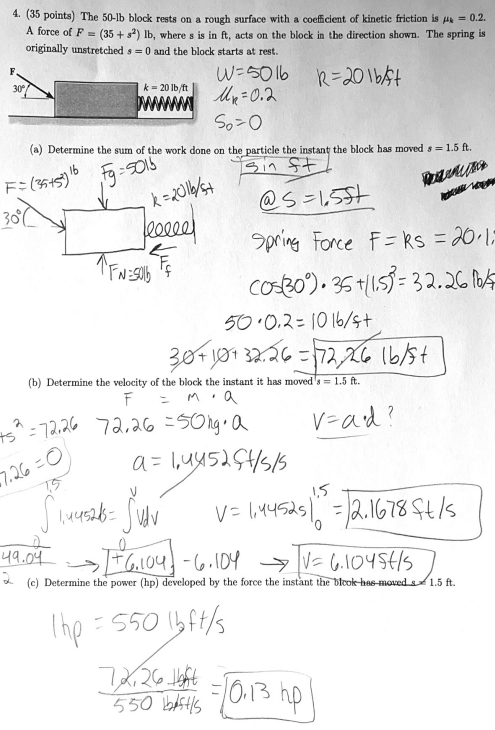 4. (35 points) The 50-lb block rests on a rough surface with a coefficient of kinetic friction is μk = 0.2.
A force of F = (35 + s²) lb, where s is in ft, acts on the block in the direction shown. The spring is
originally unstretched s = 0 and the block starts at rest.
F
30°
k = 20 lb/ft
W=50lb
k=20lb/ft
μk=0.2
S₀=0
(a) Determine the sum of the work done on the particle the instant the block has moved s = 1.5 ft.
s in ft
F=(35+s²) lb
Fg=50lb
k=20lb/ft
30°
@ s=1.5ft
FN=50lb
Ff
Spring Force F=ks = 20·1.
cos(30°)·35+(1.5)²=32.26 lb/f
50·0.2=10 lb/ft
30+10+32.26 = 72.26 lb/ft
(b) Determine the velocity of the block the instant it has moved s = 1.5 ft.
F = m·a
+s² =72.26
72.26 =50kg·a
v=a·d?
7.26=0
a= 1.4452ft/s/s
∫₀^1.5 1.4452s = ∫₀^v vdv
v= 1.4452s|₀^1.5 = 2.1678 ft/s
49.04
2
→ +6.104 -6.104 → v= 6.104ft/s
(c) Determine the power (hp) developed by the force the instant the block has moved s = 1.5 ft.
1hp = 550 lbft/s
72.26 lbft
550 lbft/s
= 0.13 hp